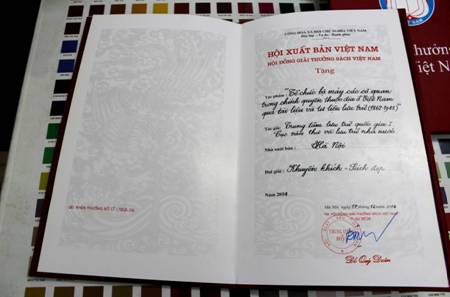 CỘNG HOÀ XÃ HỘI CHỦ NGHĨA VIỆT NAM
Độc lập - Tự do - Hạnh phúc
HỘI XUẤT BẢN VIỆT NAM
HỘI ĐỒNG GIẢI THƯỞNG SÁCH VIỆT NAM
Tặng
Tác phẩm: "Tổ chức bộ máy các cơ quan
trong chính quyền thuộc địa ở Việt Nam
qua tài liệu và tư liệu lưu trữ (1862-1945)"
Tác giả: Trung tâm lưu trữ quốc gia I
Cục văn thư và lưu trữ nhà nước
Nhà xuất bản: Hà Nội
Đạt giải: Khuyến khích - Sách đẹp
Năm
Hà Nội, ngày
Đỗ Quý Doãn
hưởng
iệt N